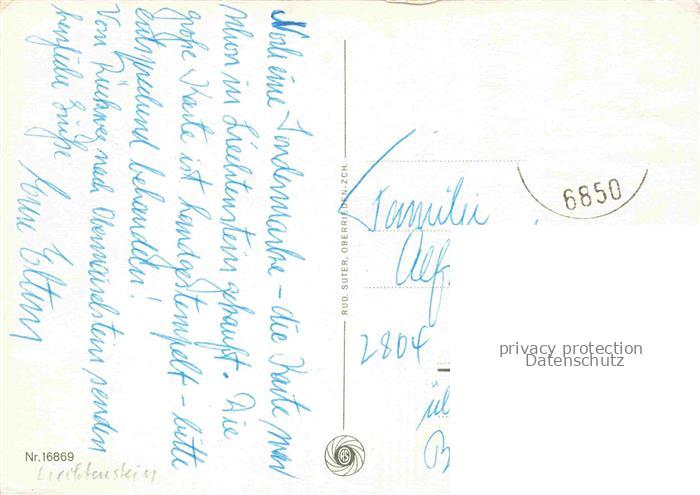 Noch eine Sondermarke – die Karte war
schon in Liechtenstein gekauft. Die
große Karte ist handgestempelt – bitte
entsprechend behandeln!
Vom Rückweg nach Obermaiselstein senden
herzliche Grüße
Eure Eltern
RUD. SUTER, OBERRIEDEN-ZCH.
6850
Familie
Alf
2804
ül
B
privacy protection
Datenschutz
Nr.16869
Liechtenstein